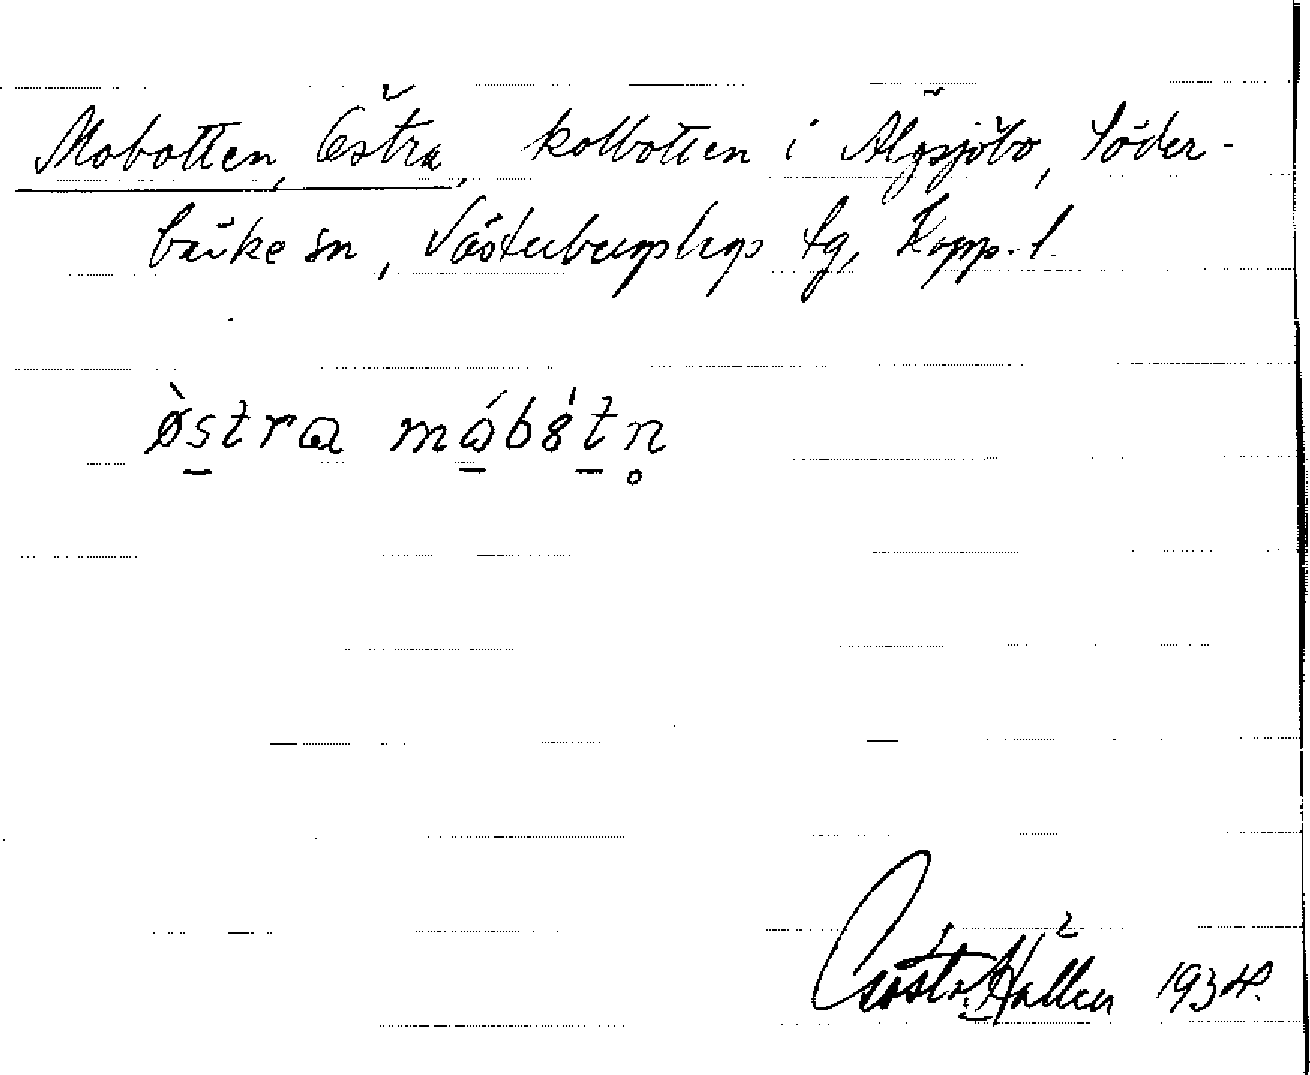 Mobotten, Östra, kolbotten i Älgsjöbo, Söder-
bärke sn, Västerbergslags tg, Kopp. l.
östra måbòtn
Gösta Hallen 1934.